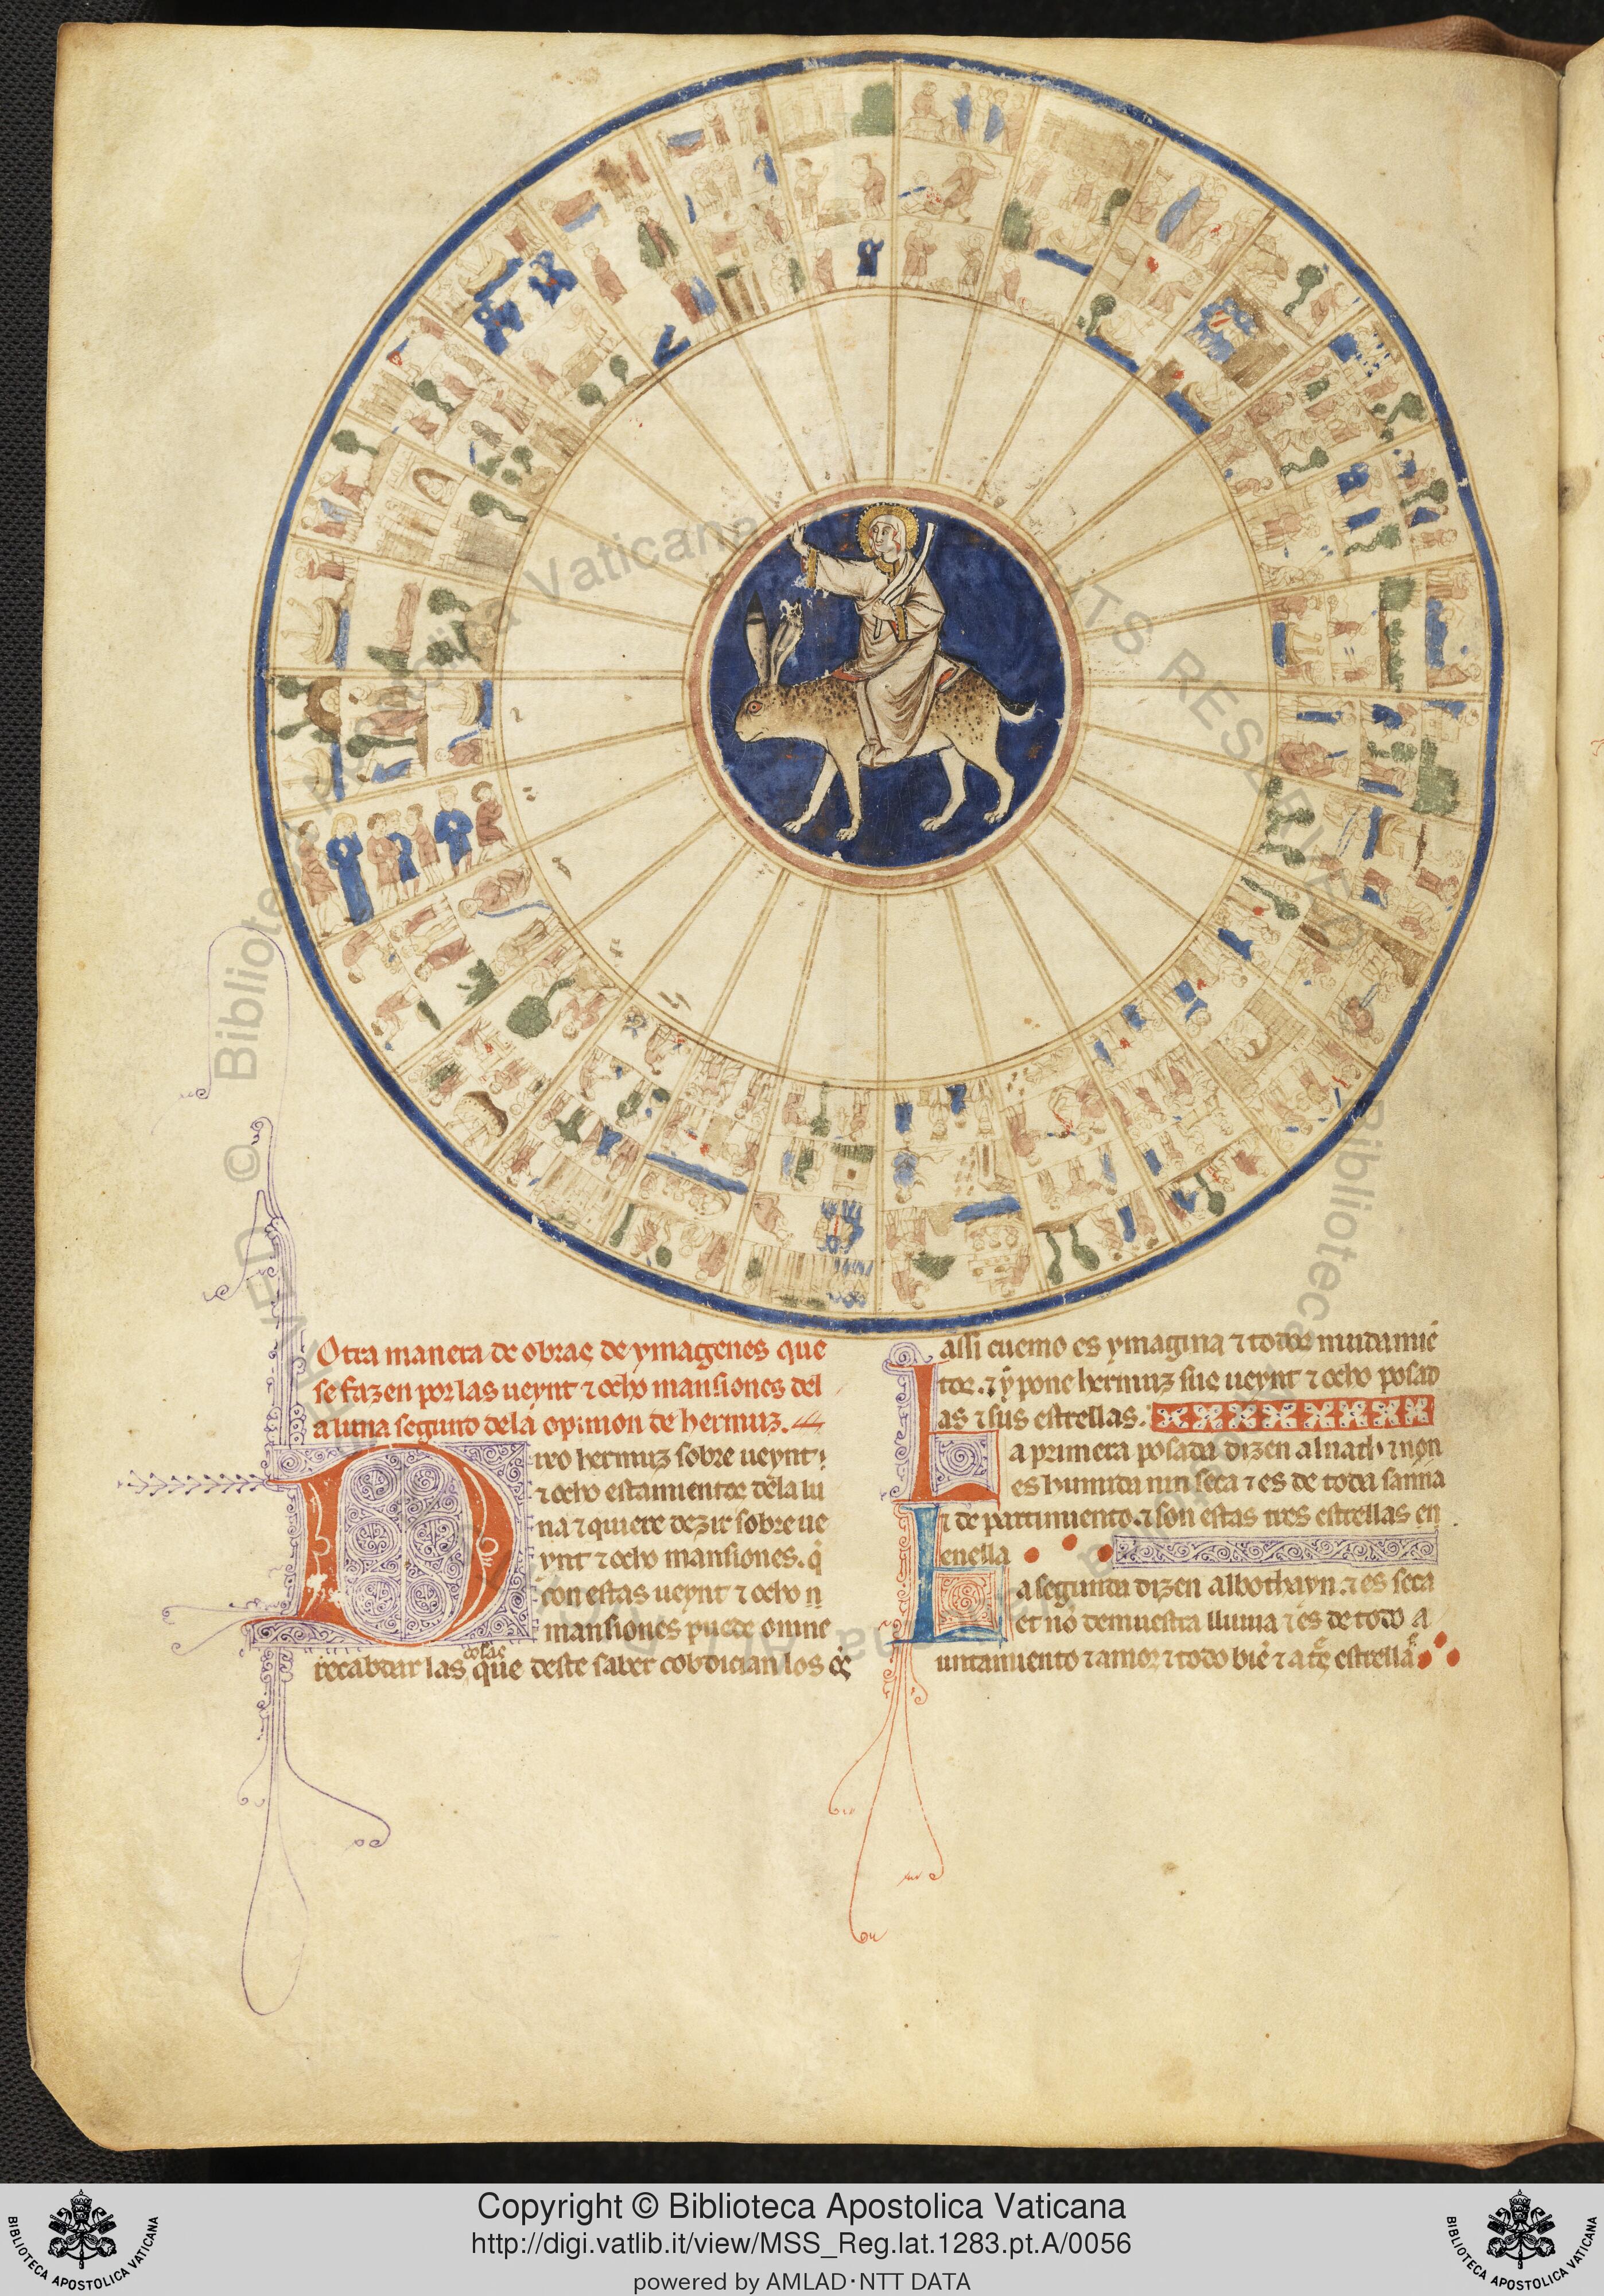 Otra manera de obras de ymagenes que
se fazen por las ueynt ⁊ ocho mansiones del
a luna segund dela opinion de hermuz.
Dixo hermuz sobre ueynt
⁊ ocho estamientos dela lu
na ⁊ quiere dezir sobre ue
ynt ⁊ ocho mansiones. q̇
con estas ueynt ⁊ ocho
mansiones puede omne
cosas
recabdar las que deste saber cobdician los
assi cuemo es ymagina ⁊ todos mudamiē
tos. ⁊ ẏ pone hermuz sus ueynt ⁊ ocho posad
as ⁊ sus estrellas.
La primera posada dizen alnath ⁊ non
es humida nin seca ⁊ es de toda sanna
⁊ de partimiento. ⁊ son estas tres estrellas en
enella
La segunda dizen albothayn. ⁊ es seca
et no demuestra lluuia ⁊ es de todo a
untamiento ⁊ amor ⁊ todo biē ⁊ estrellas
Biblioteca Apostolica Vaticana
ALL RIGHTS RESERVED
Copyright © Biblioteca Apostolica Vaticana
http://digi.vatlib.it/view/MSS_Reg.lat.1283.pt.A/0056
powered by AMLAD·NTT DATA
BIBLIOTECA APOSTOLICA VATICANA
BIBLIOTECA APOSTOLICA VATICANA